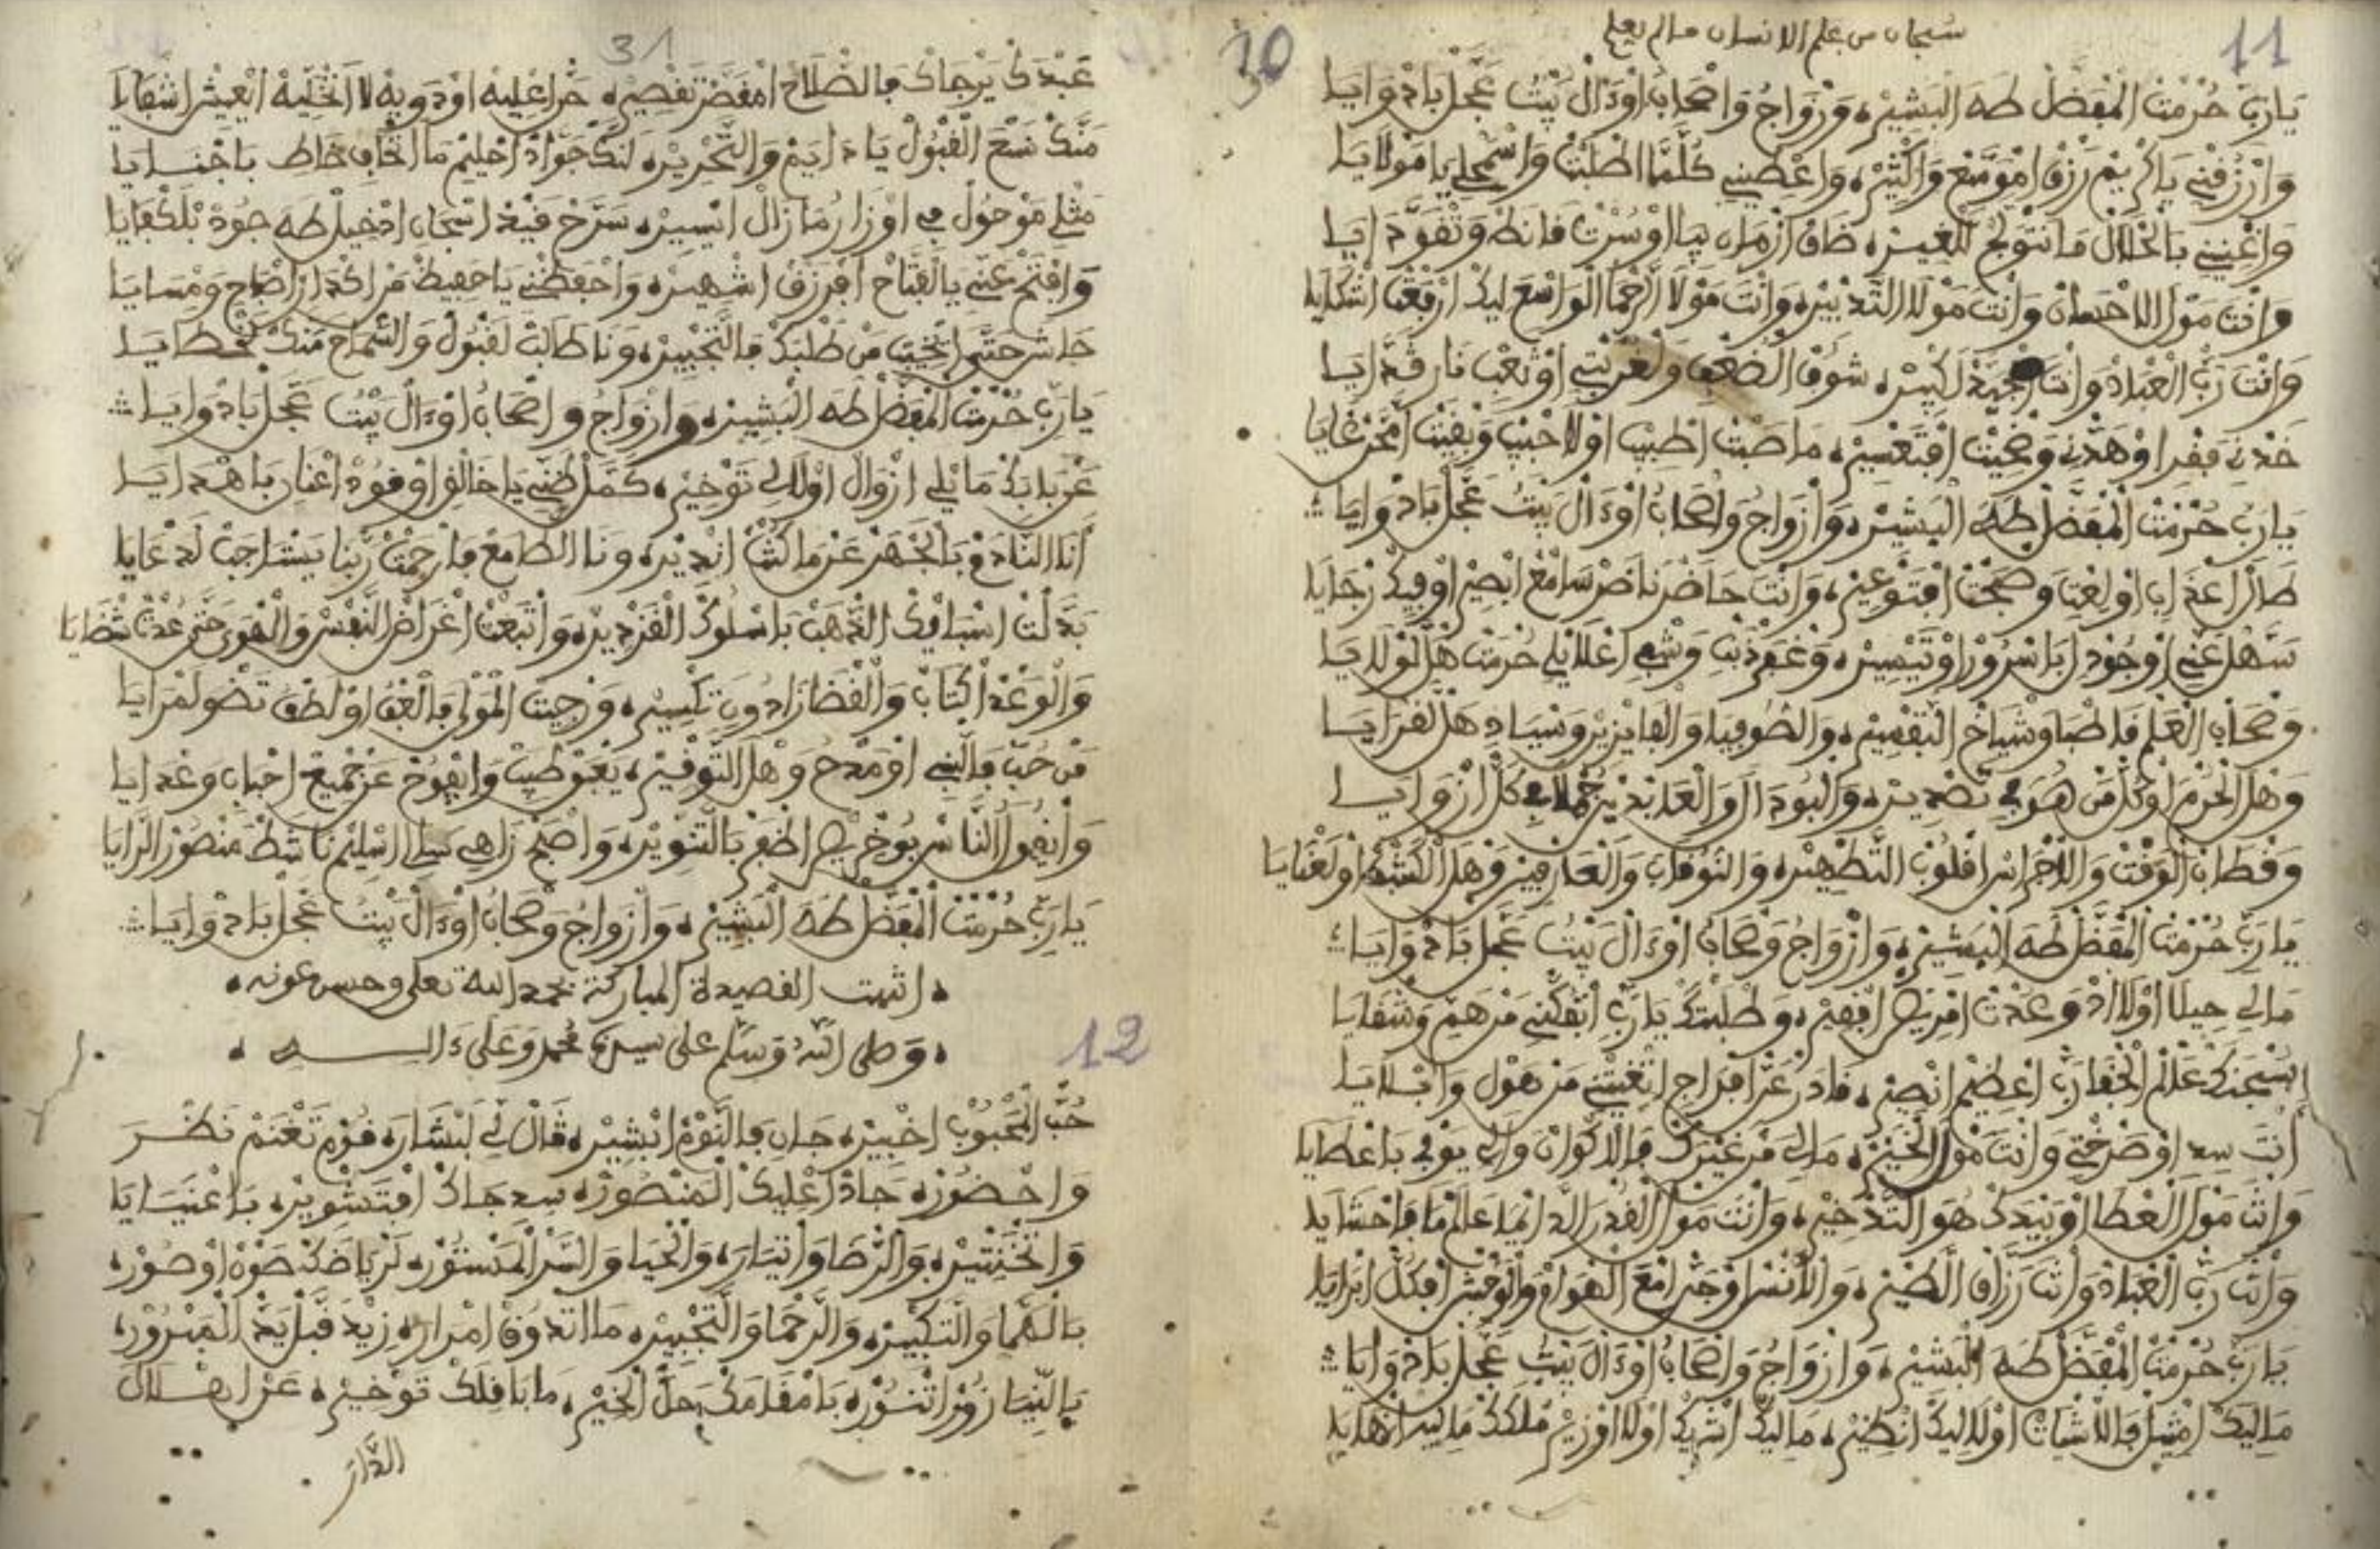 11
30
سبحان من علم الانسان ما لم يعلم
يَارَبِّ حُرْمَتْ الْمُفَضَّلْ طَهَ الْبَشِيرْ، وَزْوَاجُ وَاصْحَابُ اوْءَالْ بَيْتُ عَجَّلْ بَادْوَايَا
وَارْزُقْنِي يَا كْرِيمْ رَزْقْ امْوَسَّعْ وَاكْثِيرْ، وَاعْطِينِي كُلَّمَا اطْلَبْتْ وَاسْمَحْلِي يَا مَوْلَايَا
وَاغْنِينِي بَالْحْلَالْ مَا نَتْوَجَّ لَلْغِيرْ، ضَاقْ ازْمَانِ بِيَا اوْسُرْتْ فَانْطَهْ وَتْقَوَّدَايَا
وَانْتَ مَوْلَ الاحْسَانْ وَانْتَ مَوْلَا التَّدْبِيرْ، وَانْتَ مَوْلَا الرَّحْمَا الْوَاسْعَ لِيكْ ارْفَعْتْ اشْكَايَا
وَانْتَ رَبَّ الْعْبَادْ وَانْتَ لَكْبِيرْ، شُوفْ الْضُعْفِي وَلْغُرْبْتِي اوْتَعْبِ نَارْ قْدَايَا
خَدْنِ فَقْرِ اوْهَدْنِ وَضْحِيتْ افْتَعْسِيرْ، مَا صَبْتْ اطْبِيبْ اوْلَا حْبِيبْ وَبْقِيتْ امْحَرْ غَايَا
يَارَبِّ حُرْمَتْ الْمُفَضَّلْ طَهَ الْبَشِيرْ، وَازْوَاجُ وَاصْحَابُ اوْءَالْ بَيْتُ عَجَّلْ بَادْوَايَا
طَالْ اعْدَابِ اوْلِعْتِ وَضْحِيتْ افْتَوْعِيرْ، وَانْتَ حَاضَرْ نَاضَرْ سَامَعْ ابْصِيرْ اوْفِيكْ رْجَايَا
سَهَّلْ عَنِّي اوْجُودْ ابَاسْرُورْ اوْتَيْسِيرْ، وَغْفَرْ دَنْبِ وَشْفِي اعْلَايْلِي حُرْمَتْ هَلْ لَوْلَايَا
وَصْحَابْ الْعَلْمْ فَاطْمَا وَشْيَاخْ التَّفْسِيرْ، وَالصُّوفِيَا وَالْفَايْزِينْ وَسْيَادِ هَلْ لَقْرَايَا
وَهْلَ الْحُرْمَا اوْكُلْ مَنْ هُوَ فِي تَصْدِيرْ، وَالْبُودَالَا وَالْعَابْدِينْ جُمْلَا فِي كُلْ ازْوَايَا
وَقْطَابْ الْوَقْتْ وَالاجْرَاسْ اقْلُوبْ التَّطْهِيرْ، وَالنُّوقَابْ وَالْعَارْفِينْ وَهْلَ الْكَشْفْ اوْلَعْنَايَا
يَارَبِّ حُرْمَتْ الْمُفَضَّلْ طَهَ الْبَشِيرْ، وَازْوَاجُ وَصْحَابُ اوْءَالْ بَيْتُ عَجَّلْ بَادْوَايَا
مَالِي حِيلَا اوْلَا ادْوَ عَدْتْ امْرِيضْ افْقِيرْ، وَطْلَبْتَكْ يَا رَبِّ اتْفَكْنِي مَنْ هَمِّ وَشْقَايَا
سُبْحَنَكْ عَلَّامْ الْخْفَا رَبِّ اعْظِيمْ انْصِيرْ، قَادَرْ عَزَّ افْرَاجْ اتْغِيتْنِي مَنْ هَوْلِ وَابْلَايَا
أَنْتَ سِيدِ اوْضَرْخْتِي وَانْتَ مَوْلَ الْخِيرْ، مَالِي مَنْ غِيرَكْ فَالاكْوَانْ وَالِي يَوْفِي بَاعْطَايَا
وَانْتَ مَوْلَ الْعْطَا اوْبِيدَكْ هُوَ التَّدْخِيرْ، وَانْتَ مَوْلَ الْقُدْرَا الدَّايْمَا عَالَمْ مَا فَاحْشَايَا
وَانْتَ رَبَّ الْعْبَادْ وَانْتَ رَزَّاقْ الطِّيرْ، وَالانْسْ اوْجَنْ امْعَ الْهْوَامْ وَالْوْحُشْ افْكُلْ ابْرَايَا
يَارَبِّ حُرْمَتْ الْمُفَضَّلْ طَهَ الْبَشِيرْ، وَازْوَاجُ وَاصْحَابُ اوْءَالْ بَيْتُ عَجَّلْ بَادْوَايَا
مَالِيكْ امْثِيلْ فَالاشْيَاتْ اوْلَا لِيكْ انْظِيرْ، مَالِيكْ اشْرِيكْ اوْلَا اوْزِيرْ مُلْكَكْ مَالِيهْ انْهَايَا
31
عَبْدَكْ يَرْجَاكْ فَالصْلَاحْ امْفَضَّرْ تَقْصِيرْ، حَرَّ اعْلِيهْ اوْدَوِيهْ لَا اتْخَلِّيهْ انْعِيشْ اشْقَايَا
مَنَّكْ نَسْعَ الْقْبُولْ يَا دَايَمْ وَالتَّحْرِيرْ، لَنَّكْ جَوَّادْ احْلِيمْ مَا اتْخَافِ خَاطِ بَاجْنَايَا
مَثْلِي مَوْحُولْ فِي اوْزَارُ مَازَالْ ايْسِيرْ، سَرَّحْ قَيْدْ اسْجَانِ ادْخِيلْ طَهَ جُودْ بَلَكْفَايَا
وَافْتَحْ عَنِّي يَالْفَتَّاحْ افْرَزْقْ اشْهِيرْ، وَاحْفَظْنِي يَا حَفِيظْ مَنْ اكْدَارْ اصْبَاحِ وَمْسَايَا
حَاشَ حَتَّى اتْخَيَّبْ مَنْ طَلْبَكْ فَالتَّخْيِيرْ، وَنَا طَالَبْ لَقْبُولْ وَالسَّمَاحْ مَنَّكْ لَخْطَايَا
يَارَبِّ حُرْمَتْ الْمُفَضَّلْ طَهَ الْبَشِيرْ، وَازْوَاجُ وَاصْحَابُ اوْءَالْ بَيْتُ عَجَّلْ بَادْوَايَا
عَزْ بَابَكْ مَا يْلِي ازْوَالْ اوْلَا لِي تَوْخِيرْ، كَمَّلْ ظَنِّي يَا خَالْقِي اوْقُودْ اعْنَانِ بَاهْدَايَا
أَنَا النَّادَغْ بَالْجْهَرْ عَنْ مَا كُنْتْ انْدِيرْ، وَنَا الطَّامَعْ فَارْحَمْتْ رَبْنَا يَسْتَاجَبْ لَدْعَايَا
بَدَّلْتْ اسْبَايْكْ الذْهَبْ بَاسْلُوكْ الْقَزْدِيرْ، وَاتْبَعْتْ اغْرَاضْ النَّفْسْ وَالْهْوَى حَتَّى عُدْتْ شْضَايَا
وَالْوَعْدْ اكْتَابْ وَالْقْضَا زَادُونِ تَكْسِيرْ، وَرْجِيتْ الْمَوْلَى فَالْعْفُ اوْلَطْفْ تَضْوَ لَمْرَايَا
مَنْ حُبِّ فَالنَّبِي اوْمَدْحُ وَهْلَ التَّوْقِيرْ، يَعْبَقْ طِيبْ وَايْفُوحْ عَنْ جْمِيعْ احْبَابِ وَعْدَايَا
وَايْقُولُ النَّاسْ بُوخْرِيصْ اظْفَرْ بَالتَّنْوِيرْ، وَاصْبَحْ زَاهِي سَالِي اسْلِيمْ نَاشَطْ مَنْصُورْ الرَّايَا
يَارَبِّ حُرْمَتْ الْمُفَضَّلْ طَهَ الْبَشِيرْ، وَازْوَاجُ وَصْحَابُ اوْءَالْ بَيْتُ عَجَّلْ بَادْوَايَا
انتهت القصيدة المباركة بحمد الله تعلى وحسن عونه
وَصلى اللهُ وَسَلَّم على سيدنا محمد وَعَلى ءَاله
12
حُبَّ الْمَحْبُوبْ اخْبِيرْ، جَانِ فَالنَّوْمْ ابْشِيرْ، قَالْ لِي لَبْشَارَ، قُومْ تَغْنَمْ نَظْرَ
وَاحْضُورْ، جَادْ اعْلِيكْ الْمَنْصُورْ، سِيدِ جَاكْ افْتَشْوِيرْ، بَاعْنَايَا
وَاتْخَنْتِيرْ، وَالرْضَا وَانْيَارَ، وَالْحْيَا وَالسَّرْ الْمَسْتُورْ، لَرْيَاضَكْ ضَوْهْ اوْصُورْ،
بَالْهْمَا وَالتَّكْبِيرْ، وَالرَّحْمَا وَالتَّجْبِيرْ، مَا اتْدُوقْ امْرَارَ، زِيدْ قَبَّلْ يَدَّ الْمَبْرُورْ،
يَالنِّيَا زُورْ اتْنُورْ، بَامْقَامَكْ حَلْ الْخِيرْ، مَا بَاقْلَكْ تَوْخِيرْ، عَزْ اهْلَالْ
الدَّار